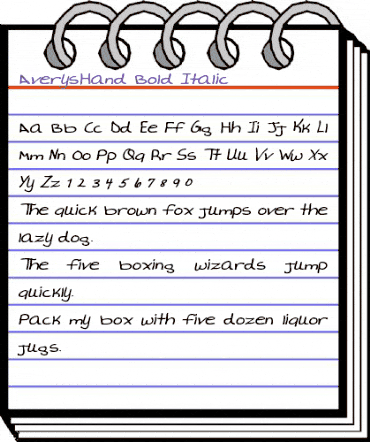 AverysHand Bold Italic
Aa Bb Cc Dd Ee Ff Gg Hh Ii Jj Kk Ll
Mm Nn Oo Pp Qq Rr Ss Tt Uu Vv Ww Xx
Yy Zz 1 2 3 4 5 6 7 8 9 0
The quick brown fox jumps over the
lazy dog.
The five boxing wizards jump
quickly.
Pack my box with five dozen liquor
jugs.